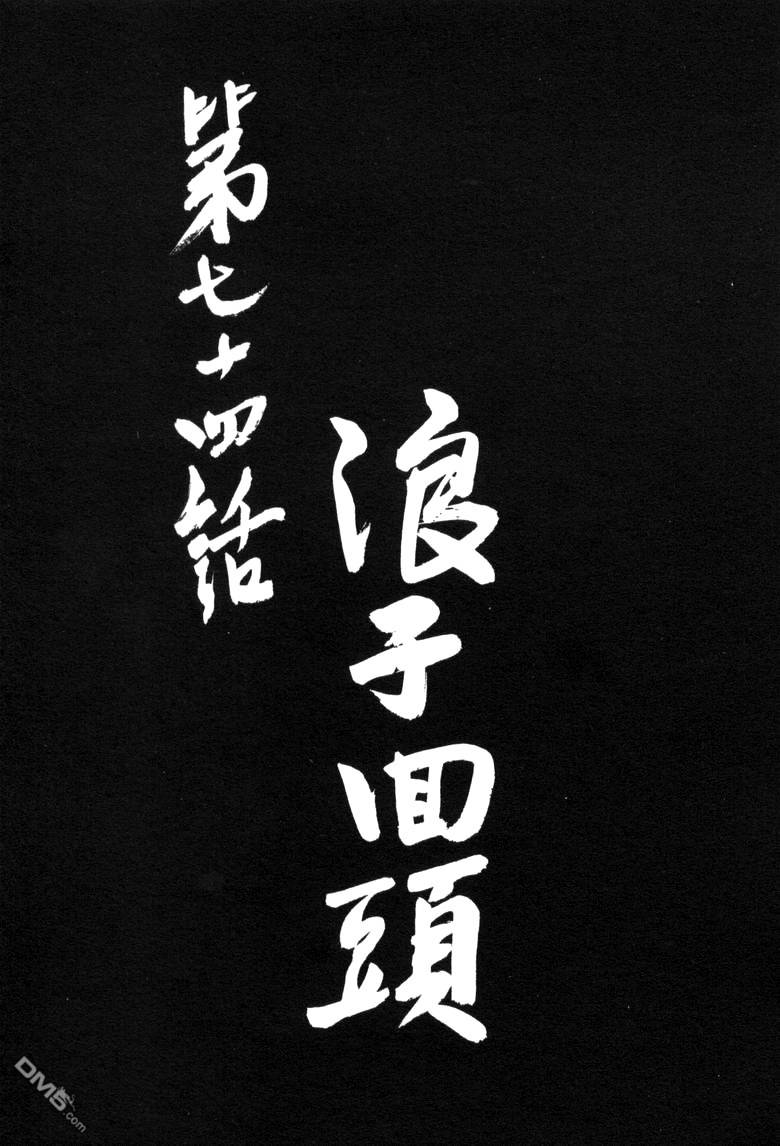 第七十四話
浪子回頭
DM5.com